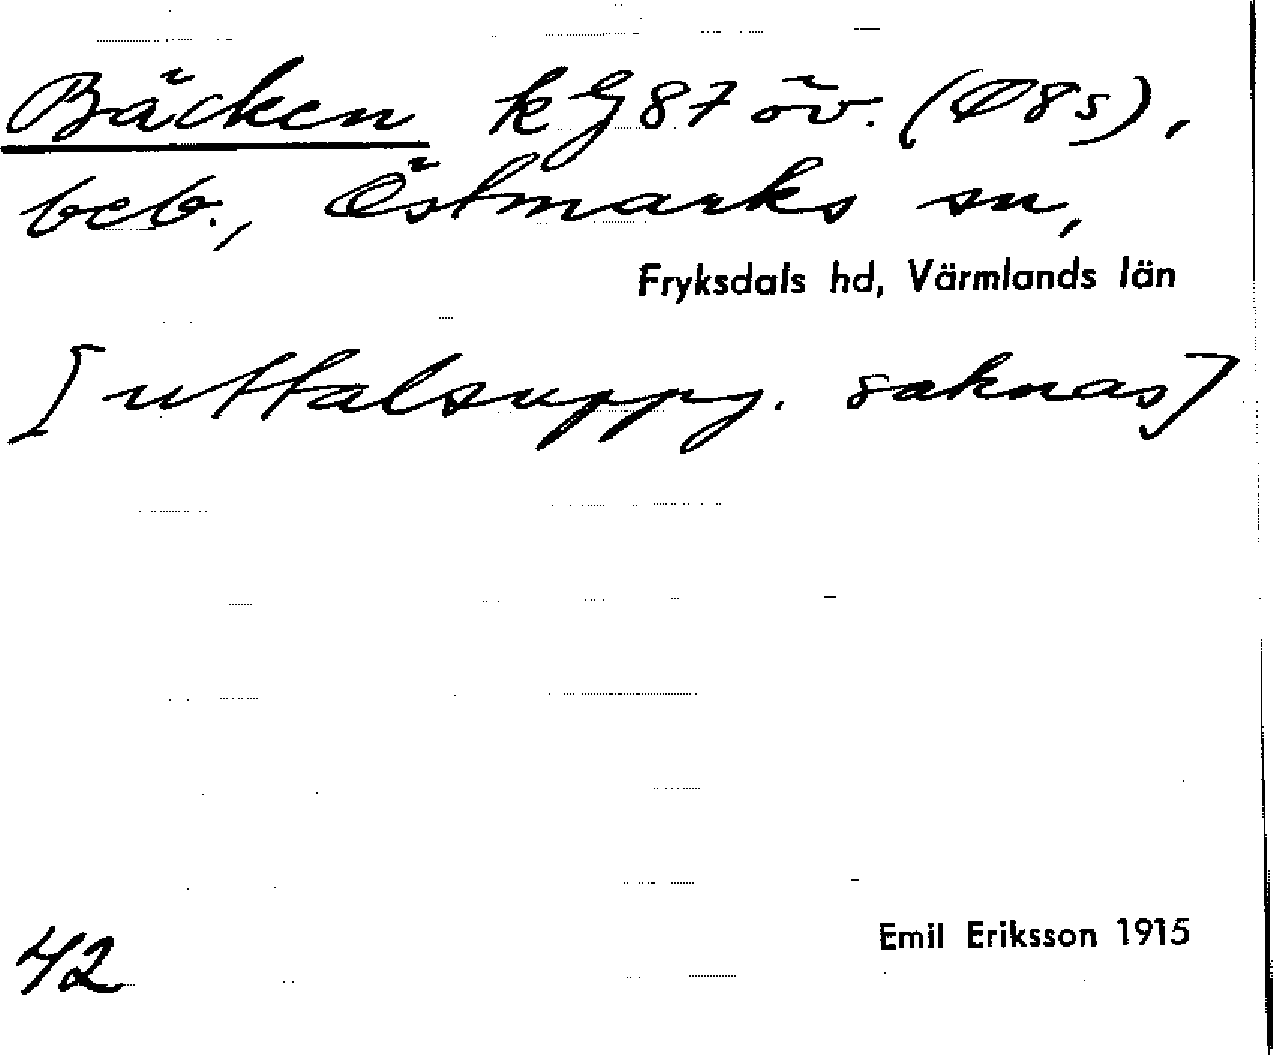 Bäcken kG 87 öv. (Ø8s),
beb., Östmarks sn,
Fryksdals hd, Värmlands län
[uttalsuppg. saknas]
42
Emil Eriksson 1915